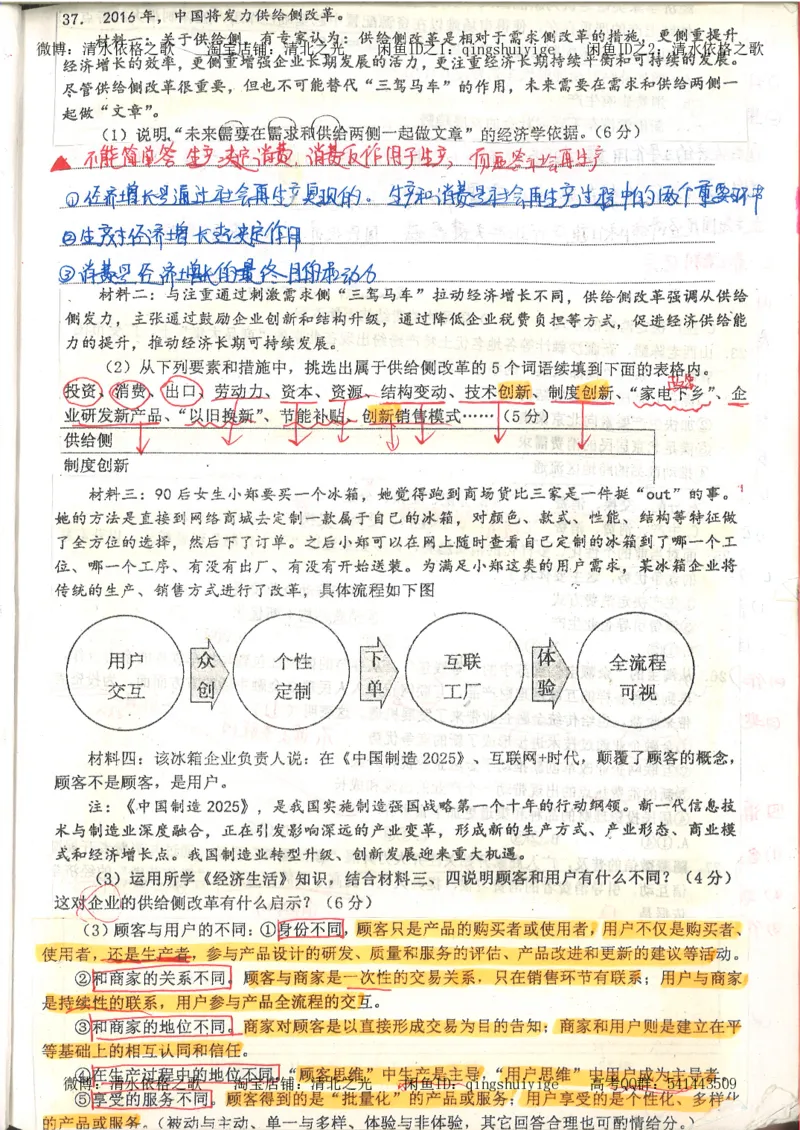 37. 2016年，中国将发力供给侧改革。
材料一：关于供给侧，有专家认为：供给侧改革是相对于需求侧改革的措施，更侧重提升
微博：清水依格之歌 淘宝店铺：清北之光 闲鱼ID之1：qingshuiyige 闲鱼ID之2：清水依格之歌
经济增长的效率，更侧重增强企业长期发展的活力，更注重经济长期持续平衡和可持续的发展。
尽管供给侧改革很重要，但也不可能替代“三驾马车”的作用，未来需要在需求和供给两侧一
起做“文章”。
（1）说明“未来需要在需求和供给两侧一起做文章”的经济学依据。（6分）
▲ 不能简单答 生产决定消费，消费反作用于生产，而要答社会再生产
①经济增长是通过社会再生产实现的。生产和消费是社会再生产过程中的两个重要环节
②生产对经济增长起决定作用
③消费是经济增长的最终目的和动力
材料二：与注重通过刺激需求侧“三驾马车”拉动经济增长不同，供给侧改革强调从供给
侧发力，主张通过鼓励企业创新和结构升级，通过降低企业税费负担等方式，促进经济供给能
力的提升，推动经济长期可持续发展。
（2）从下列要素和措施中，挑选出属于供给侧改革的5个词语续填到下面的表格内。
投资、消费、出口、劳动力、资本、资源、结构变动、技术创新、制度创新、“家电下乡”、企
业研发新产品、“以旧换新”、节能补贴、创新销售模式……（5分）
供给侧
制度创新
材料三：90后女生小郑要买一个冰箱，她觉得跑到商场货比三家是一件挺“out”的事。
她的方法是直接到网络商城去定制一款属于自己的冰箱，对颜色、款式、性能、结构等特征做
了全方位的选择，然后下了订单。之后小郑可以在网上随时查看自己定制的冰箱到了哪一个工
位、哪一个工序、有没有出厂、有没有开始送装。为满足小郑这类的用户需求，某冰箱企业将
传统的生产、销售方式进行了改革，具体流程如下图
用户
交互
众
创
个性
定制
下
单
互联
工厂
体
验
全流程
可视
材料四：该冰箱企业负责人说：在《中国制造2025》、互联网+时代，颠覆了顾客的概念，
顾客不是顾客，是用户。
注：《中国制造2025》，是我国实施制造强国战略第一个十年的行动纲领。新一代信息技
术与制造业深度融合，正在引发影响深远的产业变革，形成新的生产方式、产业形态、商业模
式和经济增长点。我国制造业转型升级、创新发展迎来重大机遇。
（3）运用所学《经济生活》知识，结合材料三、四说明顾客和用户有什么不同？（4分）
这对企业的供给侧改革有什么启示？（6分）
（3）顾客与用户的不同：①身份不同，顾客只是产品的购买者或使用者，用户不仅是购买者、
使用者，还是生产者，参与产品设计的研发、质量和服务的评估、产品改进和更新的建议等活动。
②和商家的关系不同，顾客与商家是一次性的交易关系，只在销售环节有联系；用户与商家
是持续性的联系，用户参与产品全流程的交互。
③和商家的地位不同。商家对顾客是以直接形成交易为目的告知；商家和用户则是建立在平
等基础上的相互认同和信任。
④在生产过程中的地位不同，“顾客思维”中生产是主导，“用户思维”中用户成为主导者
微博：清水依格之歌 淘宝店铺：清北之光 闲鱼ID：qingshuiyige 高考QQ群：541443509
⑤享受的服务不同。顾客得到的是“批量化”的产品或服务；用户享受的是个性化、多样化
的产品或服务。（被动与主动、单一与多样、体验与非体验，其它回答合理也可酌情给分。）